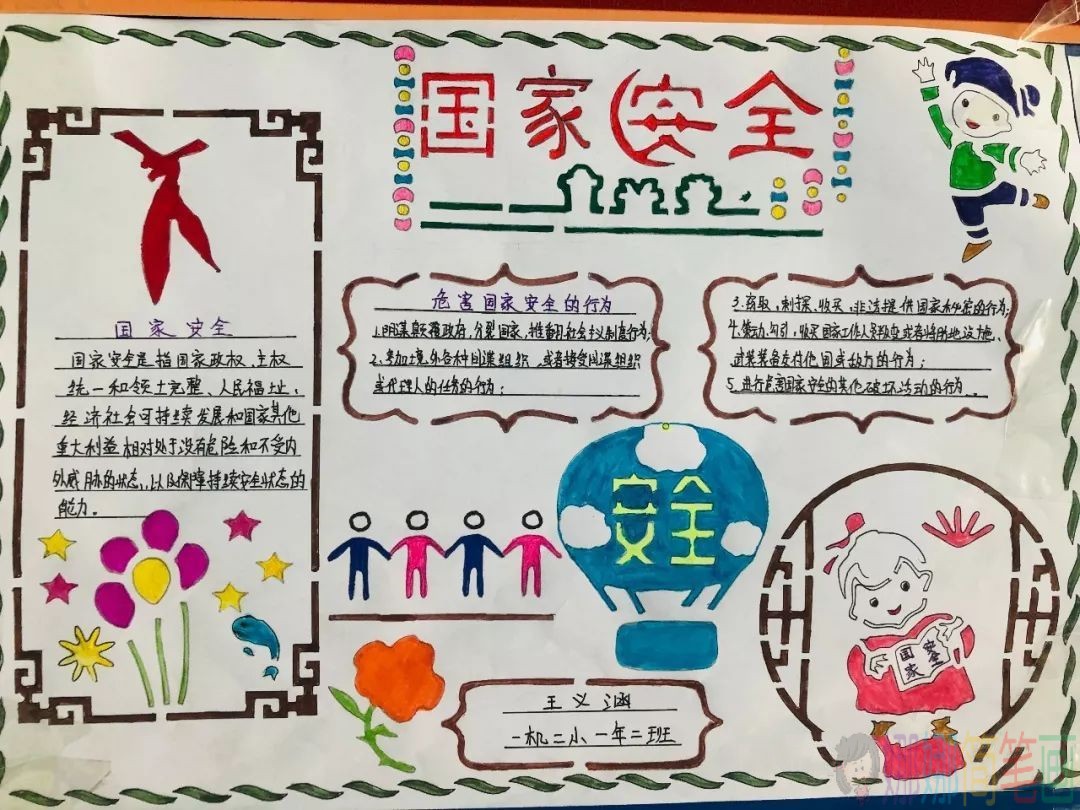 国家安全
国家安全
国家安全是指国家政权、主权
统一和领土完整、人民福址、
经济社会可持续发展和国家其他
重大利益相对处于没有危险和不受内
外威胁的状态,以及保障持续安全状态的
能力。
危害国家安全的行为
1.阴谋颠覆政府,分裂国家,推翻社会主义制度行为;
2、参加境外各种间谍组织,或者接受间谍组织
或代理人的任务的行为;
3.窃取、刺探、收买、非法提供国家秘密的行为;
4.策动、勾引、收买国家工作人员叛变或者将防地设施、
武装装备交付他国或敌方的行为;
5、进行危害国家安全的其他破坏活动的行为..
安全
国家
安全
王义涵
一机二小一年二班
娜娜简笔画